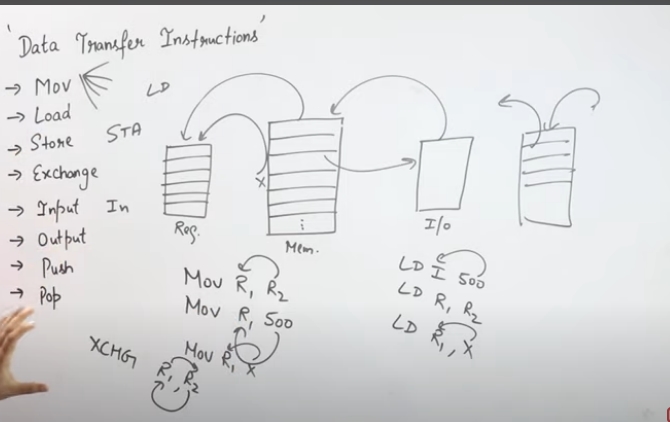 'Data Transfer Instructions'
→ Mov
LD
→ Load
→ Store STA
→ Exchange
→ Input In
→ Output
→ Push
→ Pop
x
Reg.
Mem.
I/o
Mov R1 R2
Mov R1 500
Mov R1 x
XCHG R1, R2
LD I 500
LD R1, R2
LD R1, x